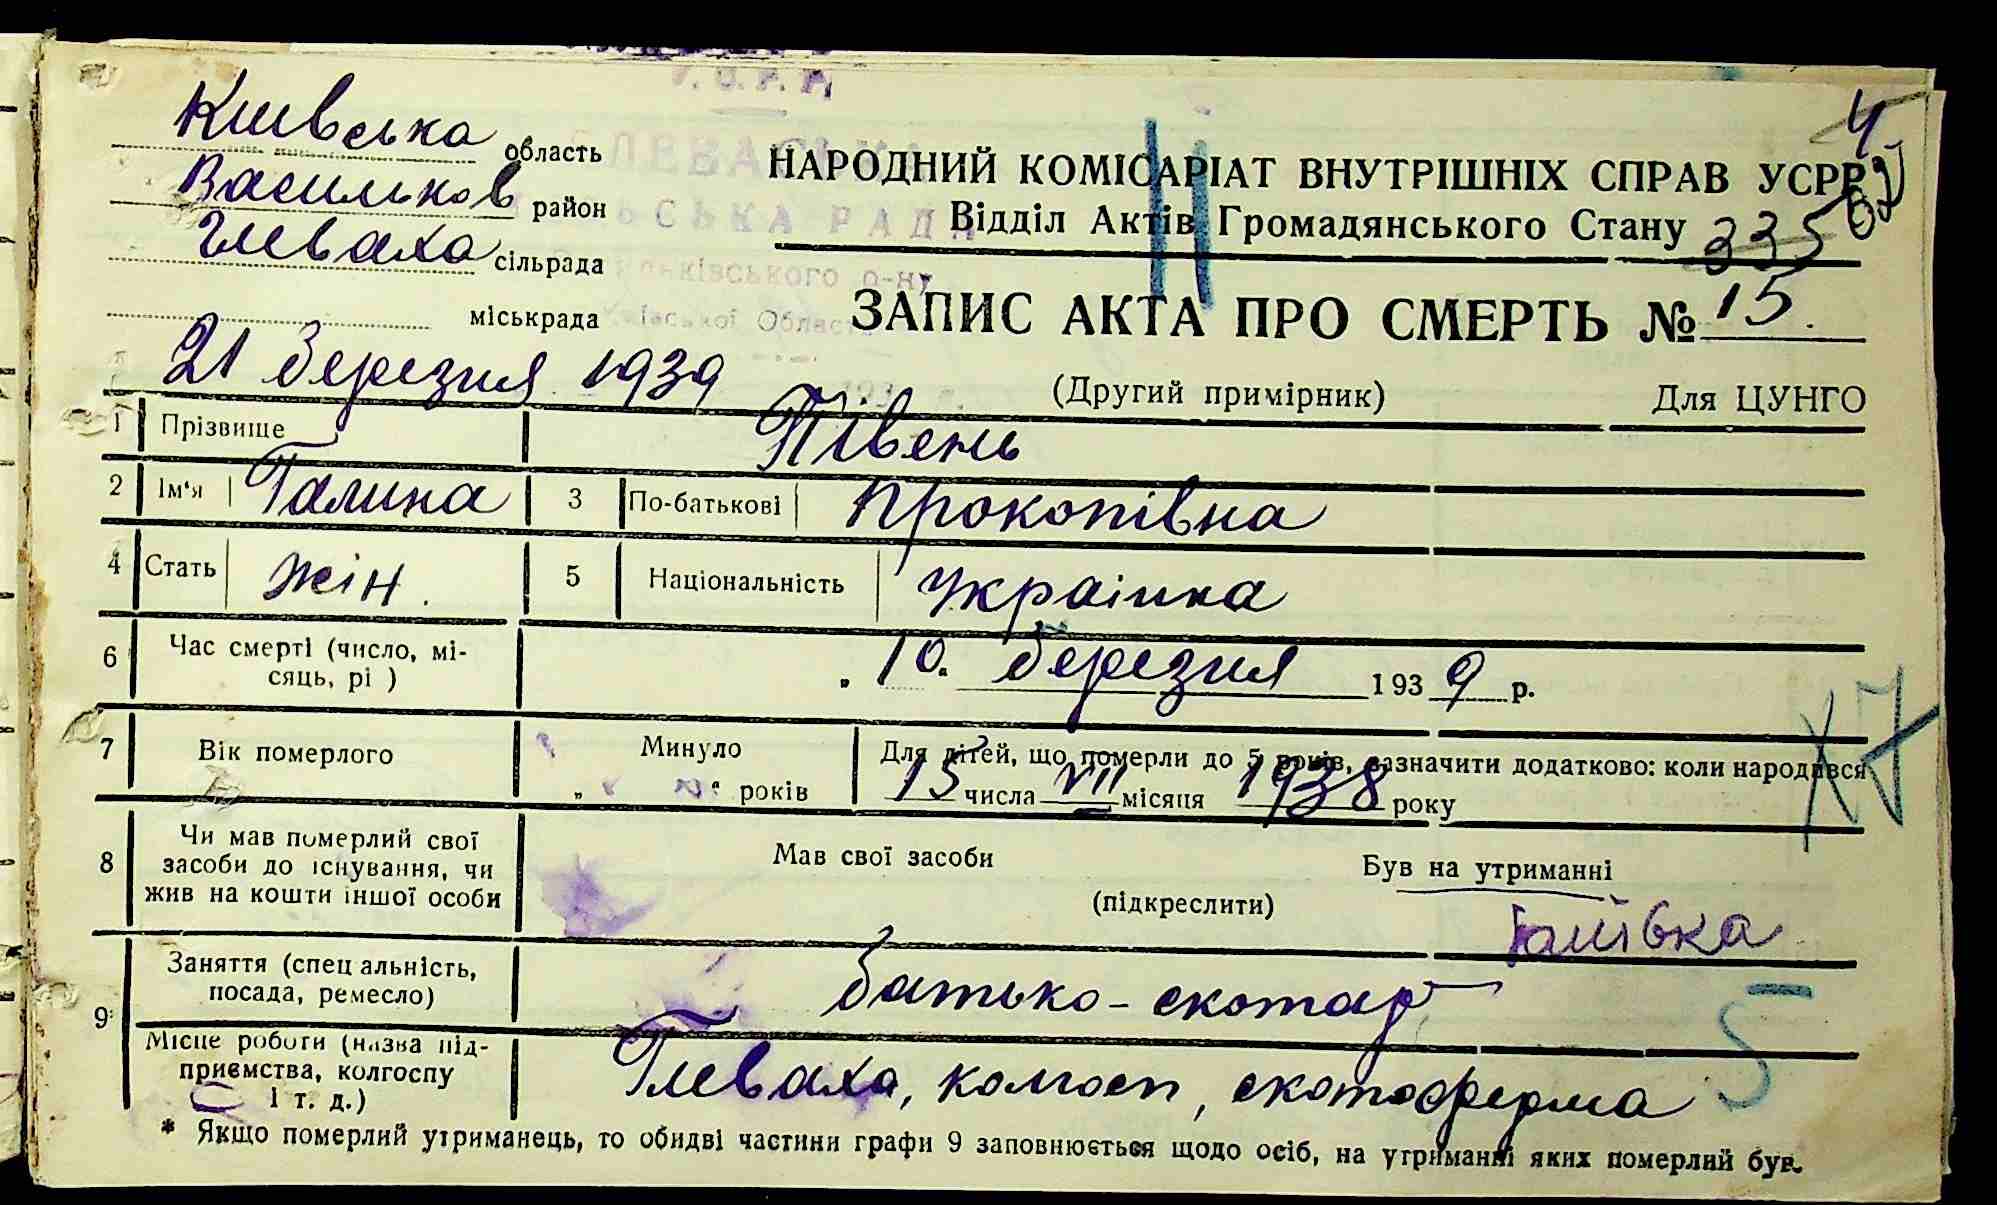 4
Київська область
НАРОДНИЙ КОМІСАРІАТ ВНУТРІШНІХ СПРАВ УСРР
Васильков район
СЬКА РАДА
Відділ Актів Громадянського Стану 335
Глеваха сільрада
ківського р-ну
міськрада
Київської Області
ЗАПИС АКТА ПРО СМЕРТЬ № 15.
21 березня 1939
(Другий примірник) Для ЦУНГО
1 Прізвище Півень
2 Ім'я Галина 3 По-батькові Прокопівна
4 Стать жін. 5 Національність українка
6 Час смерті (число, мі-
сяць, рі ) „ 10. березня 1939 р.
7 Вік померлого Минуло Для дітей, що померли до 5 років, зазначити додатково: коли народився
„ " років 15 числа VII місяця 1938 року
8 Чи мав померлий свої
засоби до існування, чи
жив на кошти іншої особи
Мав свої засоби Був на утриманні
(підкреслити)
батька
9 Заняття (спец альність,
посада, ремесло) батько - скотар
5
Місце роботи (назва під-
приємства, колгоспу
і т. д.) Глеваха, колгосп, скотоферма
* Якщо померлий утриманець, то обидві частини графи 9 заповнюється щодо осіб, на утриманні яких померлий був.